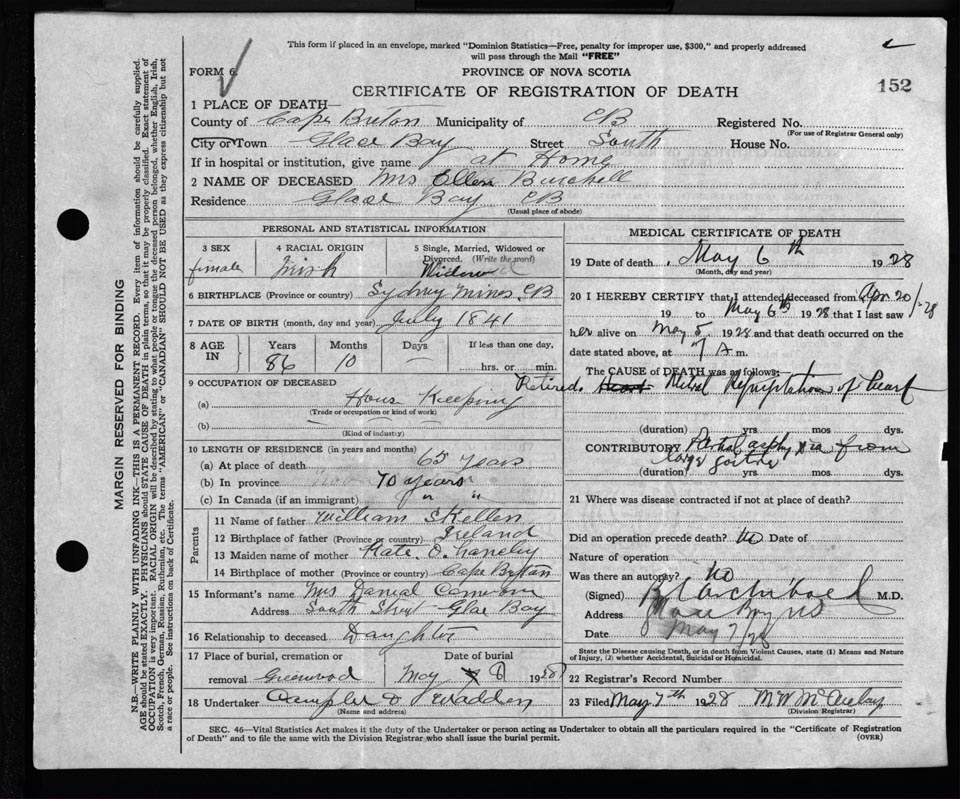 This form if placed in an envelope, marked "Dominion Statistics—Free, penalty for improper use, $300," and properly addressed
will pass through the Mail "FREE"
FORM 6.
PROVINCE OF NOVA SCOTIA
152
CERTIFICATE OF REGISTRATION OF DEATH
1 PLACE OF DEATH—
County of Cape Breton Municipality of CB Registered No.
(For use of Registrar General only)
City or Town Glace Bay Street South House No.
If in hospital or institution, give name at Home
2 NAME OF DECEASED Mrs Ellen Burchell
Residence Glace Bay CB
(Usual place of abode)
PERSONAL AND STATISTICAL INFORMATION
3 SEX 4 RACIAL ORIGIN 5 Single, Married, Widowed or
Divorced. (Write the word)
female Irish Widow
6 BIRTHPLACE (Province or country) Sydney Mines, CB
7 DATE OF BIRTH (month, day and year) July 1841
8 AGE IN Years Months Days If less than one day,
86 10 — hrs. or min.
9 OCCUPATION OF DECEASED Retired.
(a) House Keeping
(Trade or occupation or kind of work)
(b)
(Kind of industry)
10 LENGTH OF RESIDENCE (in years and months)
(a) At place of death 65 years
(b) In province 70 years
(c) In Canada (if an immigrant) " "
Parents
11 Name of father William Skellen
12 Birthplace of father (Province or country) Ireland
13 Maiden name of mother Kate
14 Birthplace of mother (Province or country) Cape Breton
15 Informant's name Mrs Danial Cameron
Address South Street Glace Bay
16 Relationship to deceased Daughter
17 Place of burial, cremation or Date of burial
removal Greenwood May 8 1928
18 Undertaker
(Name and address)
MEDICAL CERTIFICATE OF DEATH
19 Date of death May 6th 1928
(Month, day and year)
20 I HEREBY CERTIFY that I attended deceased from Apr 20/-28
19 to May 6th 1928 that I last saw
her alive on May 5, 1928 and that death occurred on
date stated above, at 7 A m.
The CAUSE of DEATH was as follows:
Mitral Regurgitation of heart
(duration) yrs mos dys.
CONTRIBUTORY Partial asphyxia from
large goitre
(duration) yrs mos dys.
21 Where was disease contracted if not at place of death?
Did an operation precede death? No Date of
Nature of operation
Was there an autopsy? No
(Signed) Archibald M.D.
Address Glace Bay NS
Date May 7/28
State the Disease causing Death, or in death from Violent Causes, state (1) Means and Nature
of Injury, (2) whether Accidental, Suicidal or Homicidal.
22 Registrar's Record Number
23 Filed May 7th 1928
(Division Registrar)
SEC. 46—Vital Statistics Act makes it the duty of the Undertaker or person acting as Undertaker to obtain all the particulars required in the "Certificate of Registration
of Death" and to file the same with the Division Registrar who shall issue the burial permit.
(OVER)
MARGIN RESERVED FOR BINDING
N.B.—WRITE PLAINLY WITH UNFADING INK—THIS IS A PERMANENT RECORD. Every item of information should be carefully supplied.
AGE should be stated EXACTLY. PHYSICIANS should STATE CAUSE OF DEATH in plain terms, so that it may be properly classified. Exact statement of
OCCUPATION is very important. RACIAL ORIGIN will be described by stating to what people or tongue the deceased person belonged, whether English, Irish,
Scotch, French, German, Russian, Ruthenian, etc. The terms "AMERICAN" or "CANADIAN" SHOULD NOT BE USED as they express citizenship but not
a race or people. See instructions on back of Certificate.